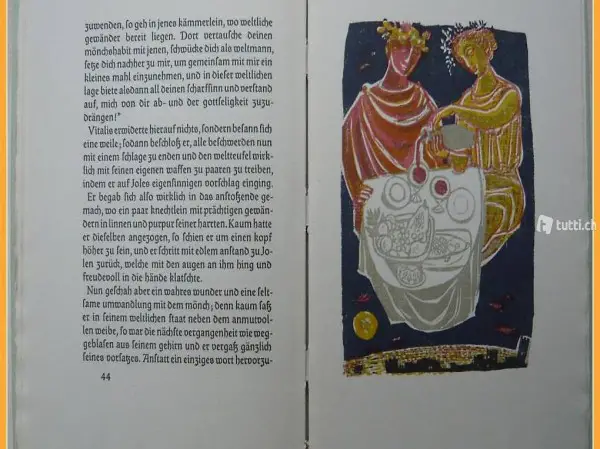 zuwenden, so geh in jenes kämmerlein, wo weltliche
gewänder bereit liegen. Dort vertausche deinen
mönchshabit mit jenen, schmücke dich als weltmann,
setze dich nachher zu mir, um gemeinsam mit mir ein
kleines mahl einzunehmen, und in dieser weltlichen
lage biete alsdann all deinen scharfsinn und verstand
auf, mich von dir ab- und der gottseligkeit zuzu-
drängen!"
Vitalis erwiderte hierauf nichts, sondern besann sich
eine weile; sodann beschloß er, alle beschwerden nun
mit einem schlage zu enden und den weltteufel wirk-
lich mit seinen eigenen waffen zu paaren zu treiben,
indem er auf Joles eigensinnigen vorschlag einging.
Er begab sich also wirklich in das anstoßende ge-
mach, wo ein paar knechtlein mit prächtigen gewän-
dern in linnen und purpur seiner harrten. Kaum hatte
er dieselben angezogen, so schien er um einen kopf
höher zu sein, und er schritt mit edlem anstand zu Jo-
len zurück, welche mit den augen an ihm hing und
freudevoll in die hände klatschte.
Nun geschah aber ein wahres wunder und eine selt-
same umwandlung mit dem mönch; denn kaum saß
er in seinem weltlichen staat neben dem anmutvol-
len weibe, so war die nächste vergangenheit wie weg-
geblasen aus seinem gehirn und er vergaß gänzlich
seines vorsatzes. Anstatt ein einziges wort hervorzu-
44
tutti.ch